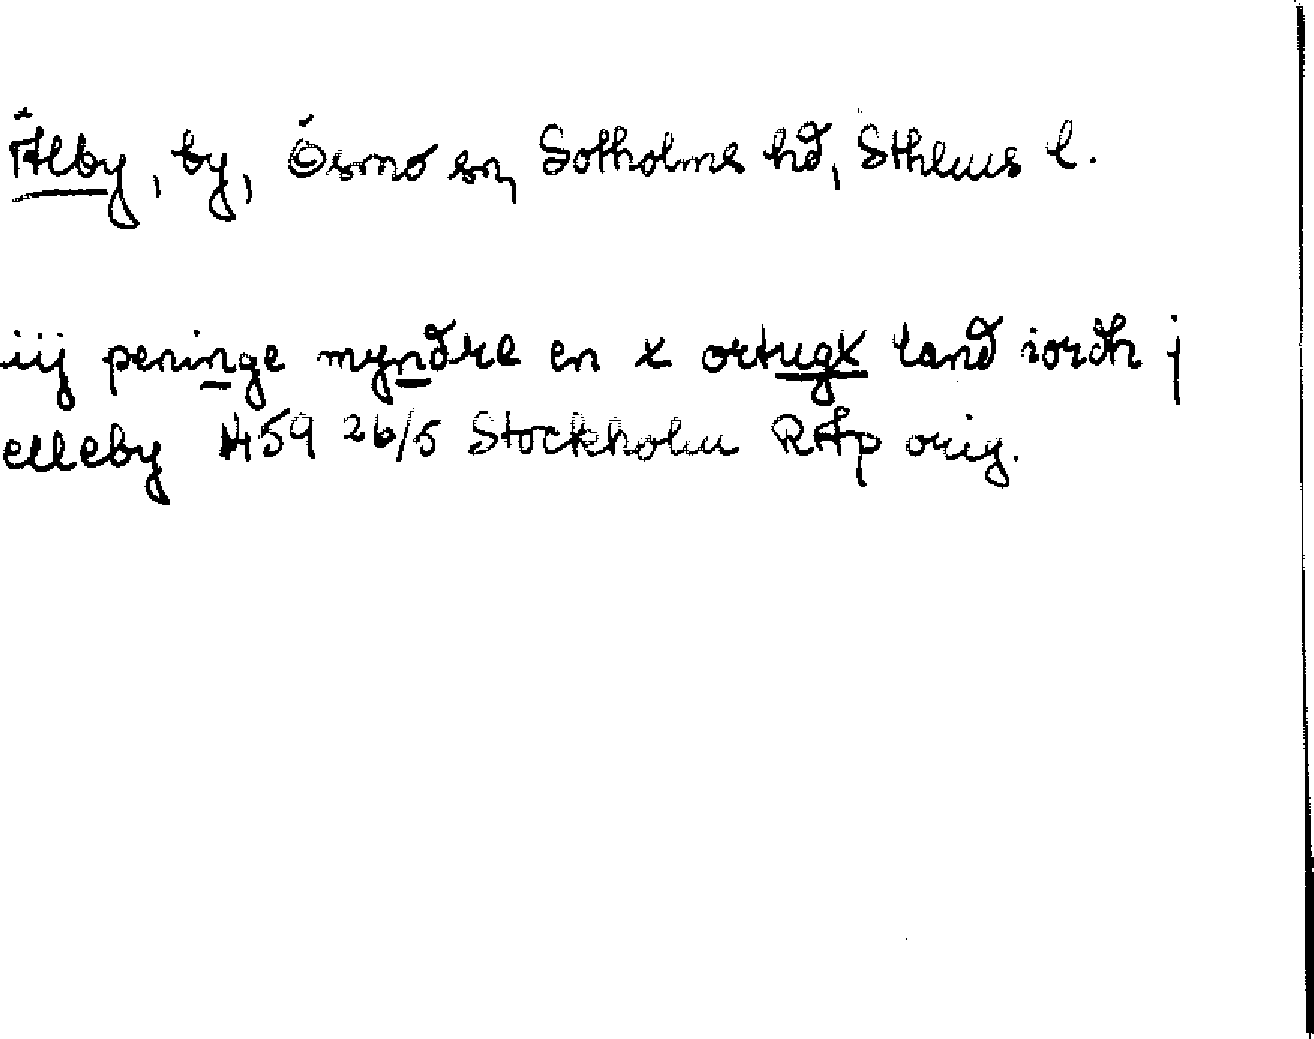 Älby, by, Ösmo sn, Sotholms hd, Sthlms l.
iij peninge myndre en x ortugx land iordh j
elleby 1459 26/5 Stockholm RAp orig.